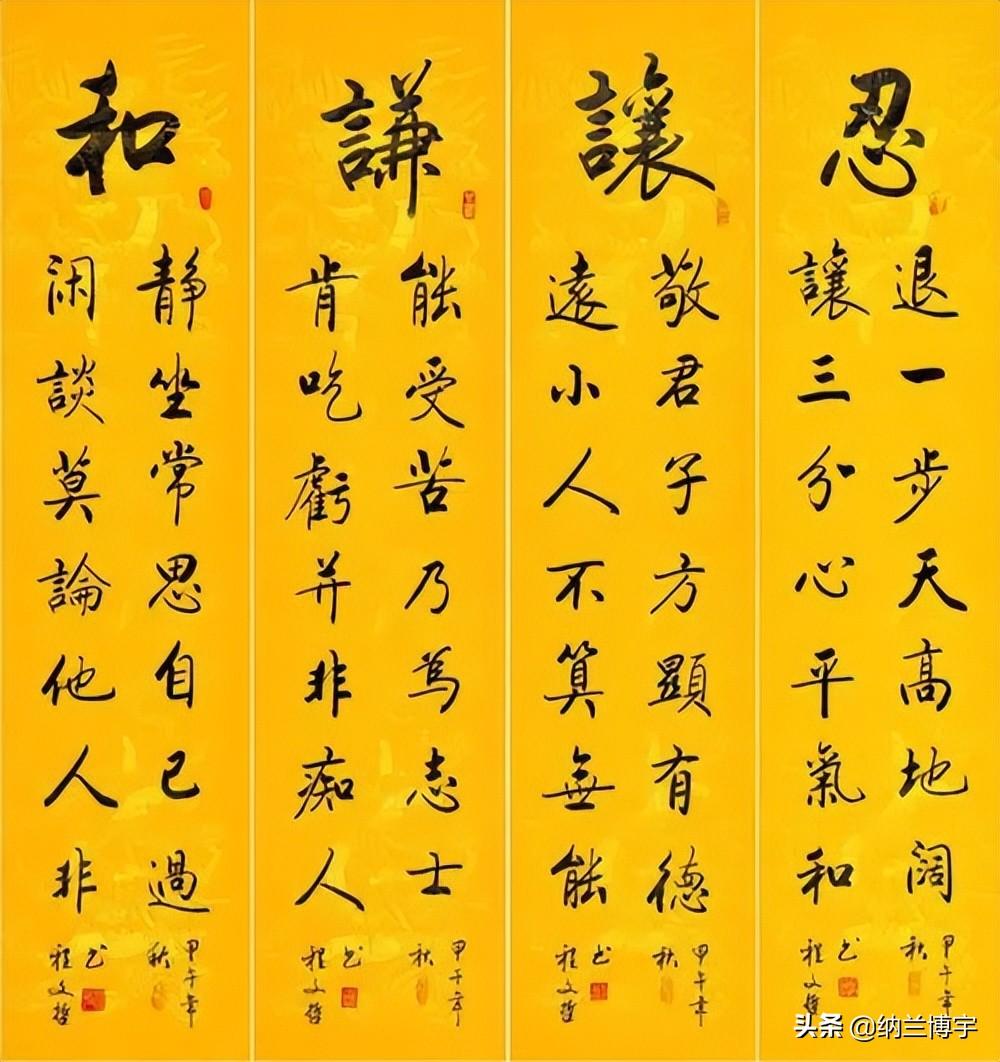 忍
退一步天高地阔
讓三分心平氣和
甲午年
秋
程文哲
书
讓
敬君子方顯有德
遠小人不算無能
甲午年
秋
程文哲
书
謙
能受苦乃為志士
肯吃虧并非痴人
甲午年
秋
程文哲
书
和
静坐常思自己過
闲談莫論他人非
甲午年
秋
程文哲
书
头条 @纳兰博宇